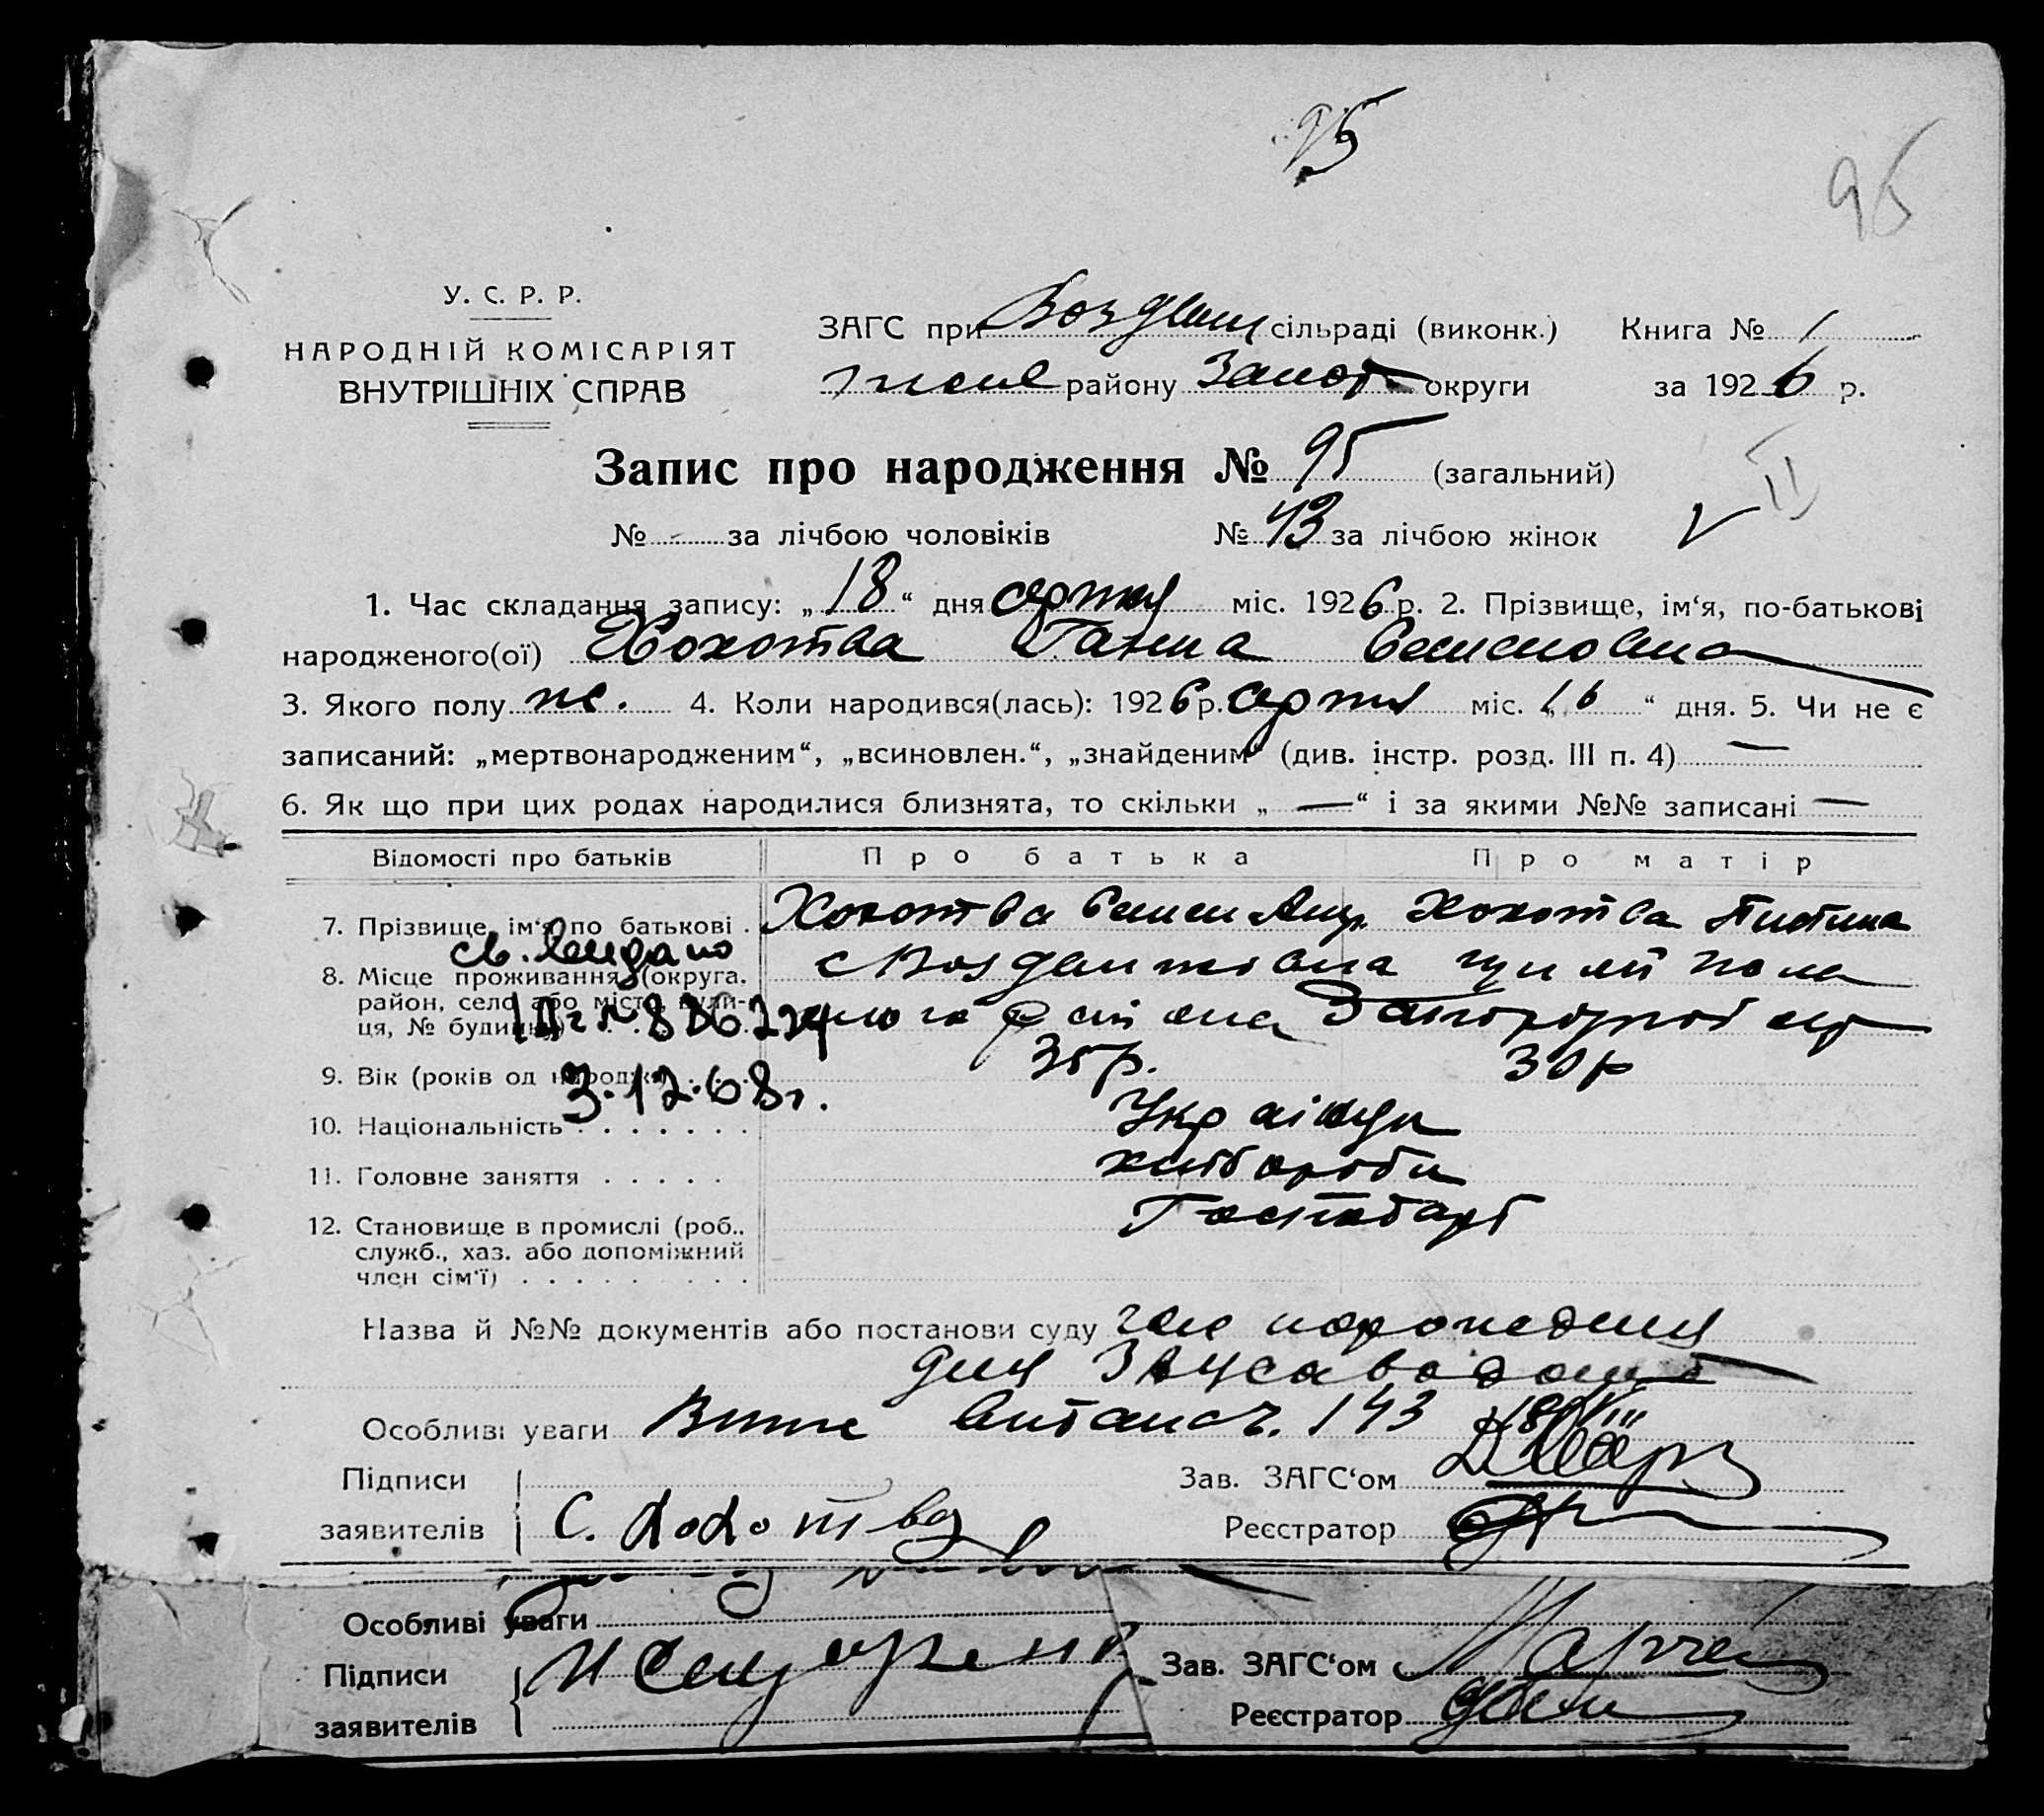 95
95
У. С. Р. Р.
НАРОДНІЙ КОМІСАРІЯТ
ВНУТРІШНІХ СПРАВ
ЗАГС при Воздвиж сільраді (виконк.) Книга № 1
району Запор округи за 1926 р.
Запис про народження № 95 (загальний)
№ за лічбою чоловіків № 43 за лічбою жінок V II
1. Час складання запису: „18“ дня серпня міс. 1926 р. 2. Прізвище, ім‘я, по-батькові
народженого(ої) Хохотва Ганна Семеновна
3. Якого полу ж. 4. Коли народився(лась): 1926 р. серпня міс. „16“ дня. 5. Чи не є
записаний: „мертвонародженим“, „всиновлен.“, „знайденим“ (див. інстр. розд. III п. 4) —
6. Як що при цих родах народилися близнята, то скільки „—“ і за якими №№ записані —
Відомості про батьків Про батька Про матір
7. Прізвище, ім‘я, по батькові Хохотва Семен Хохотва Пистина
8. Місце проживання (округа, с Воздвижівка Гуляй Поль
район, село або місто, вули- ського району Запорізької окр
ця, № будинку)
св. видано
№ 836224
3.12.68г.
9. Вік (років од народж.) 35р. 30р
10. Національність Українці
11. Головне заняття хлібороби
12. Становище в промислі (роб., Господарі
служб., хаз. або допоміжний
член сім‘ї)
Назва й №№ документів або постанови суду
Особливі уваги 143 18/VIII
Підписи Зав. ЗАГС‘ом
заявителів С. Хохотва Реєстратор
Особливі уваги
Підписи Зав. ЗАГС‘ом
заявителів Реєстратор